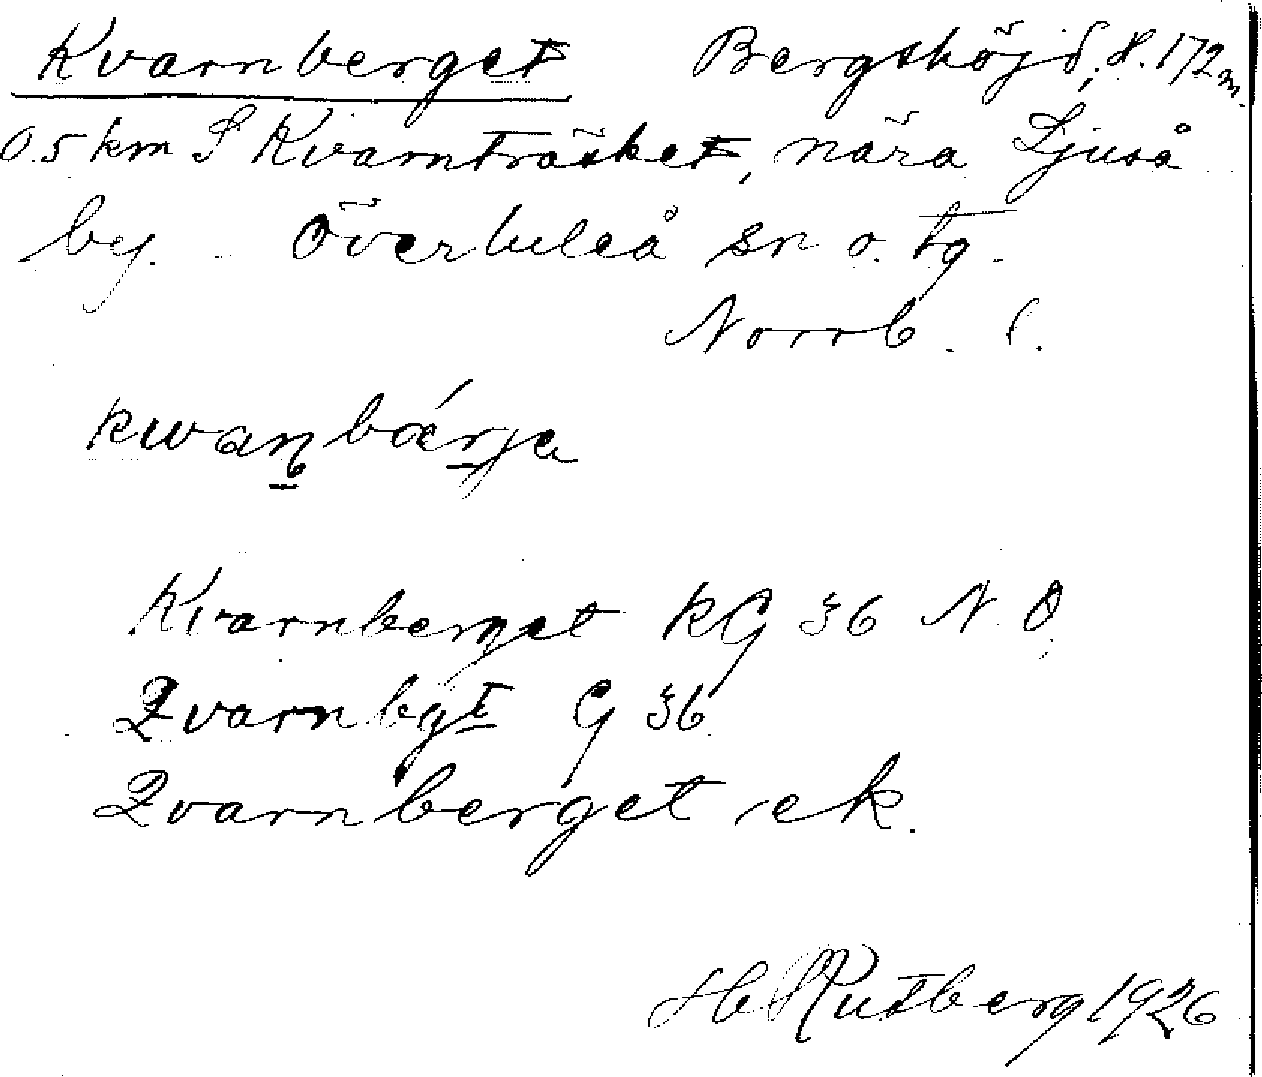 Kvarnberget Bergshöjd, 8.172 m.
0.5 km S Kvarnträsket, nära Ljuså
by. Överluleå sn o. tg.
Norrb. l.
kwaṇbærja
Kvarnberget KG 36 N.O.
Qvarnbgt G 36
Qvarnberget ek.
H Rutberg 1926